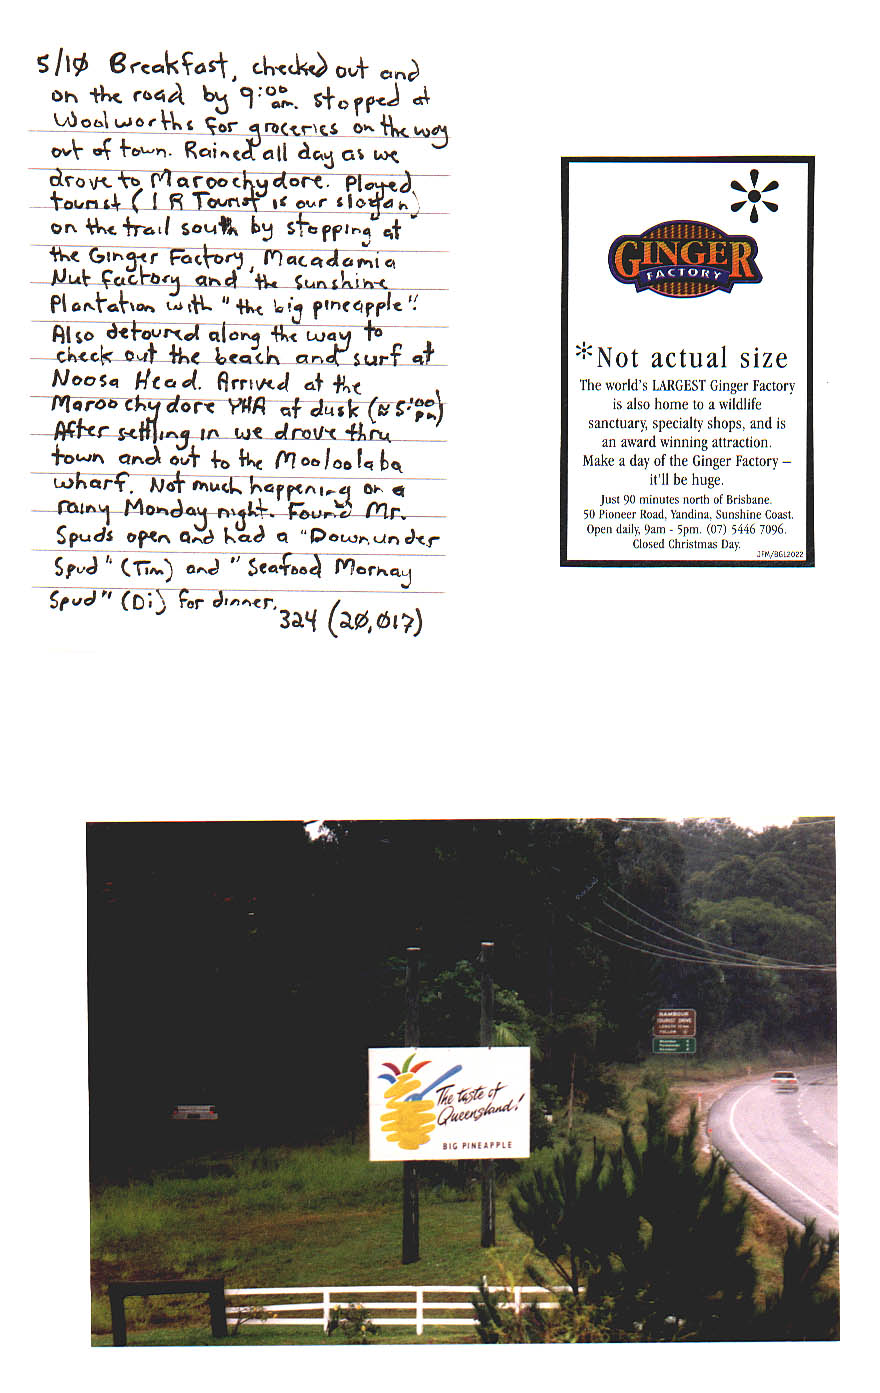 5/10 Breakfast, checked out and
on the road by 9:00 am. stopped at
Woolworths for groceries on the way
out of town. Rained all day as we
drove to Maroochydore. Played
tourist (I R Tourist is our slogan)
on the trail south by stopping at
the Ginger Factory, Macadamia
Nut factory and the Sunshine
Plantation with "the big pineapple".
Also detoured along the way to
check out the beach and surf at
Noosa Head. Arrived at the
Maroochydore YHA at dusk (≈ 5:00 pm)
After settling in we drove thru
town and out to the Mooloolaba
wharf. Not much happening on a
rainy Monday night. Found Mr.
Spuds open and had a "Downunder
Spud" (Tim) and "Seafood Mornay
Spud" (Di) for dinner.
324 (20,017)
GINGER
FACTORY
*Not actual size
The world's LARGEST Ginger Factory
is also home to a wildlife
sanctuary, specialty shops, and is
an award winning attraction.
Make a day of the Ginger Factory –
it'll be huge.
Just 90 minutes north of Brisbane.
50 Pioneer Road, Yandina, Sunshine Coast.
Open daily, 9am - 5pm. (07) 5446 7096.
Closed Christmas Day.
JFM/BGL2022
The taste of
Queensland!
BIG PINEAPPLE
NAMBOUR
TOURIST DRIVE
LENGTH
FOLLOW